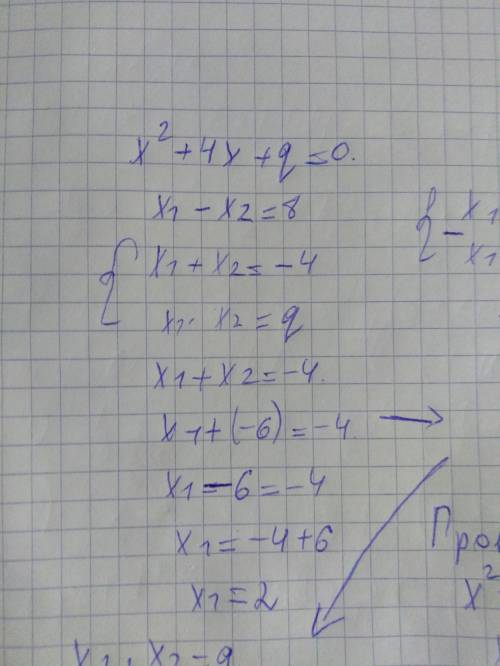 x² + 4x + q = 0.
x₁ - x₂ = 8
{ x₁ + x₂ = -4
x₁ · x₂ = q
x₁ + x₂ = -4.
x₁ + (-6) = -4 →
x₁ - 6 = -4
x₁ = -4 + 6
x₁ = 2
{ - x₁
x₁
x²